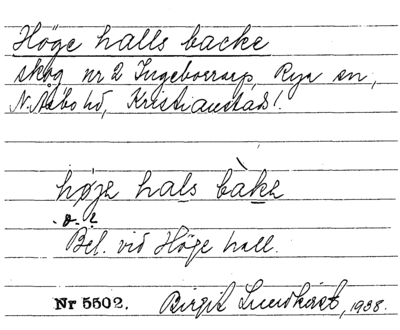 Höge halls backe
skog nr 2 Ingeborrarp, Rya sn,
N. Åsbo hd, Kristianstads l.
høje hals bàke
Bel. vid Höge hall.
Nr 5502. Birgit Lundkvist, 1938.